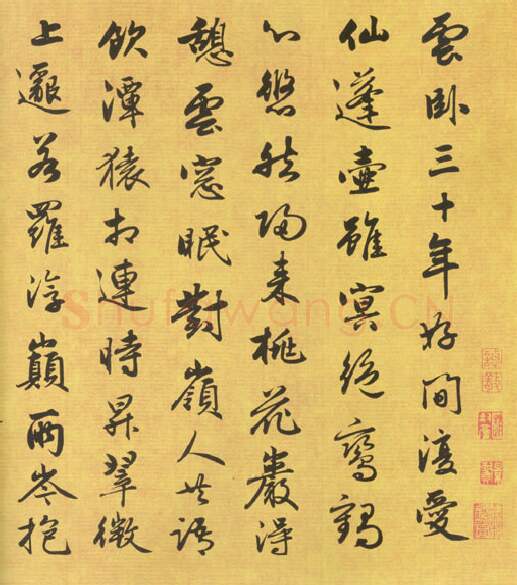 雲臥三十年好閒復愛
仙蓬壺雖冥絕鸞鶴
心悠然歸來桃花巖得
憩雲窓眠對嶺人共語
飲潭猿相連時昇翠微
上邈若羅浮巔兩岑抱
Shufawang.CN